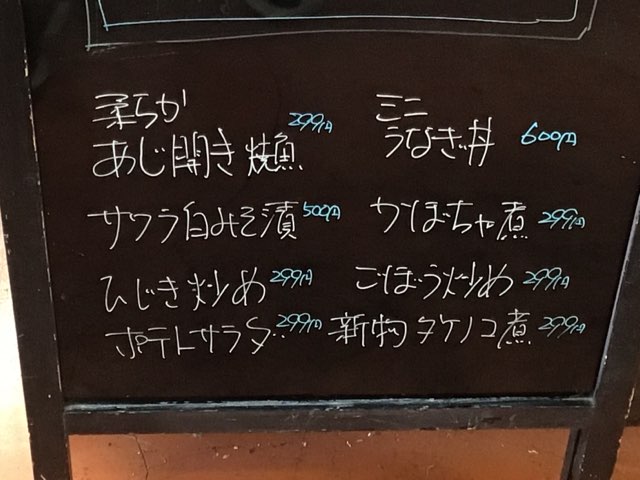 柔らか
あじ開き焼魚 299円
ミニ
うなぎ丼 600円
サワラ白みそ漬 500円
かぼちゃ煮 299円
ひじき炒め 299円
ごぼう炒め 299円
ポテトサラダ 299円
新物タケノコ煮 299円